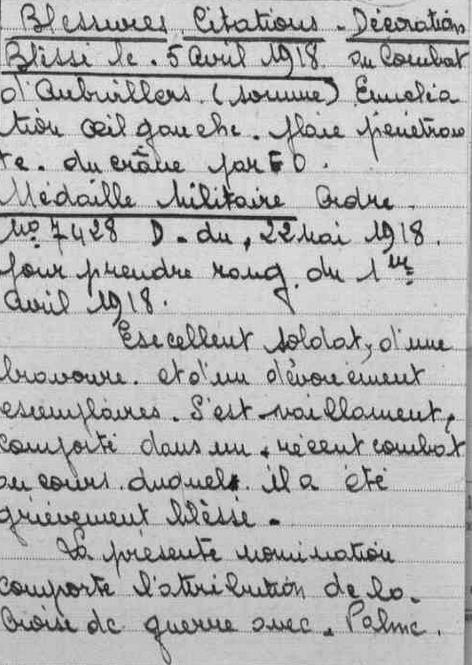 Blessures Citations - Décoration
Blessé le. 5 avril 1918 au Combat
d'Aubvillers. (Somme) Enucléa
tion œil gauche. plaie pénétran
te. du crâne par E O.
Médaille Militaire Ordre.
No 7428 D. du, 22 Mai 1918.
pour prendre rang. du 1er
avril 1918.
Excellent soldat, d'une
bravoure. et d'un dévouement
exemplaires. S'est vaillament,
comporté dans un récent combat
au cours duquel il a été
grièvement blessé.
La présente nomination
comporte l'attribution de la.
Croise de guerre avec. Palme.